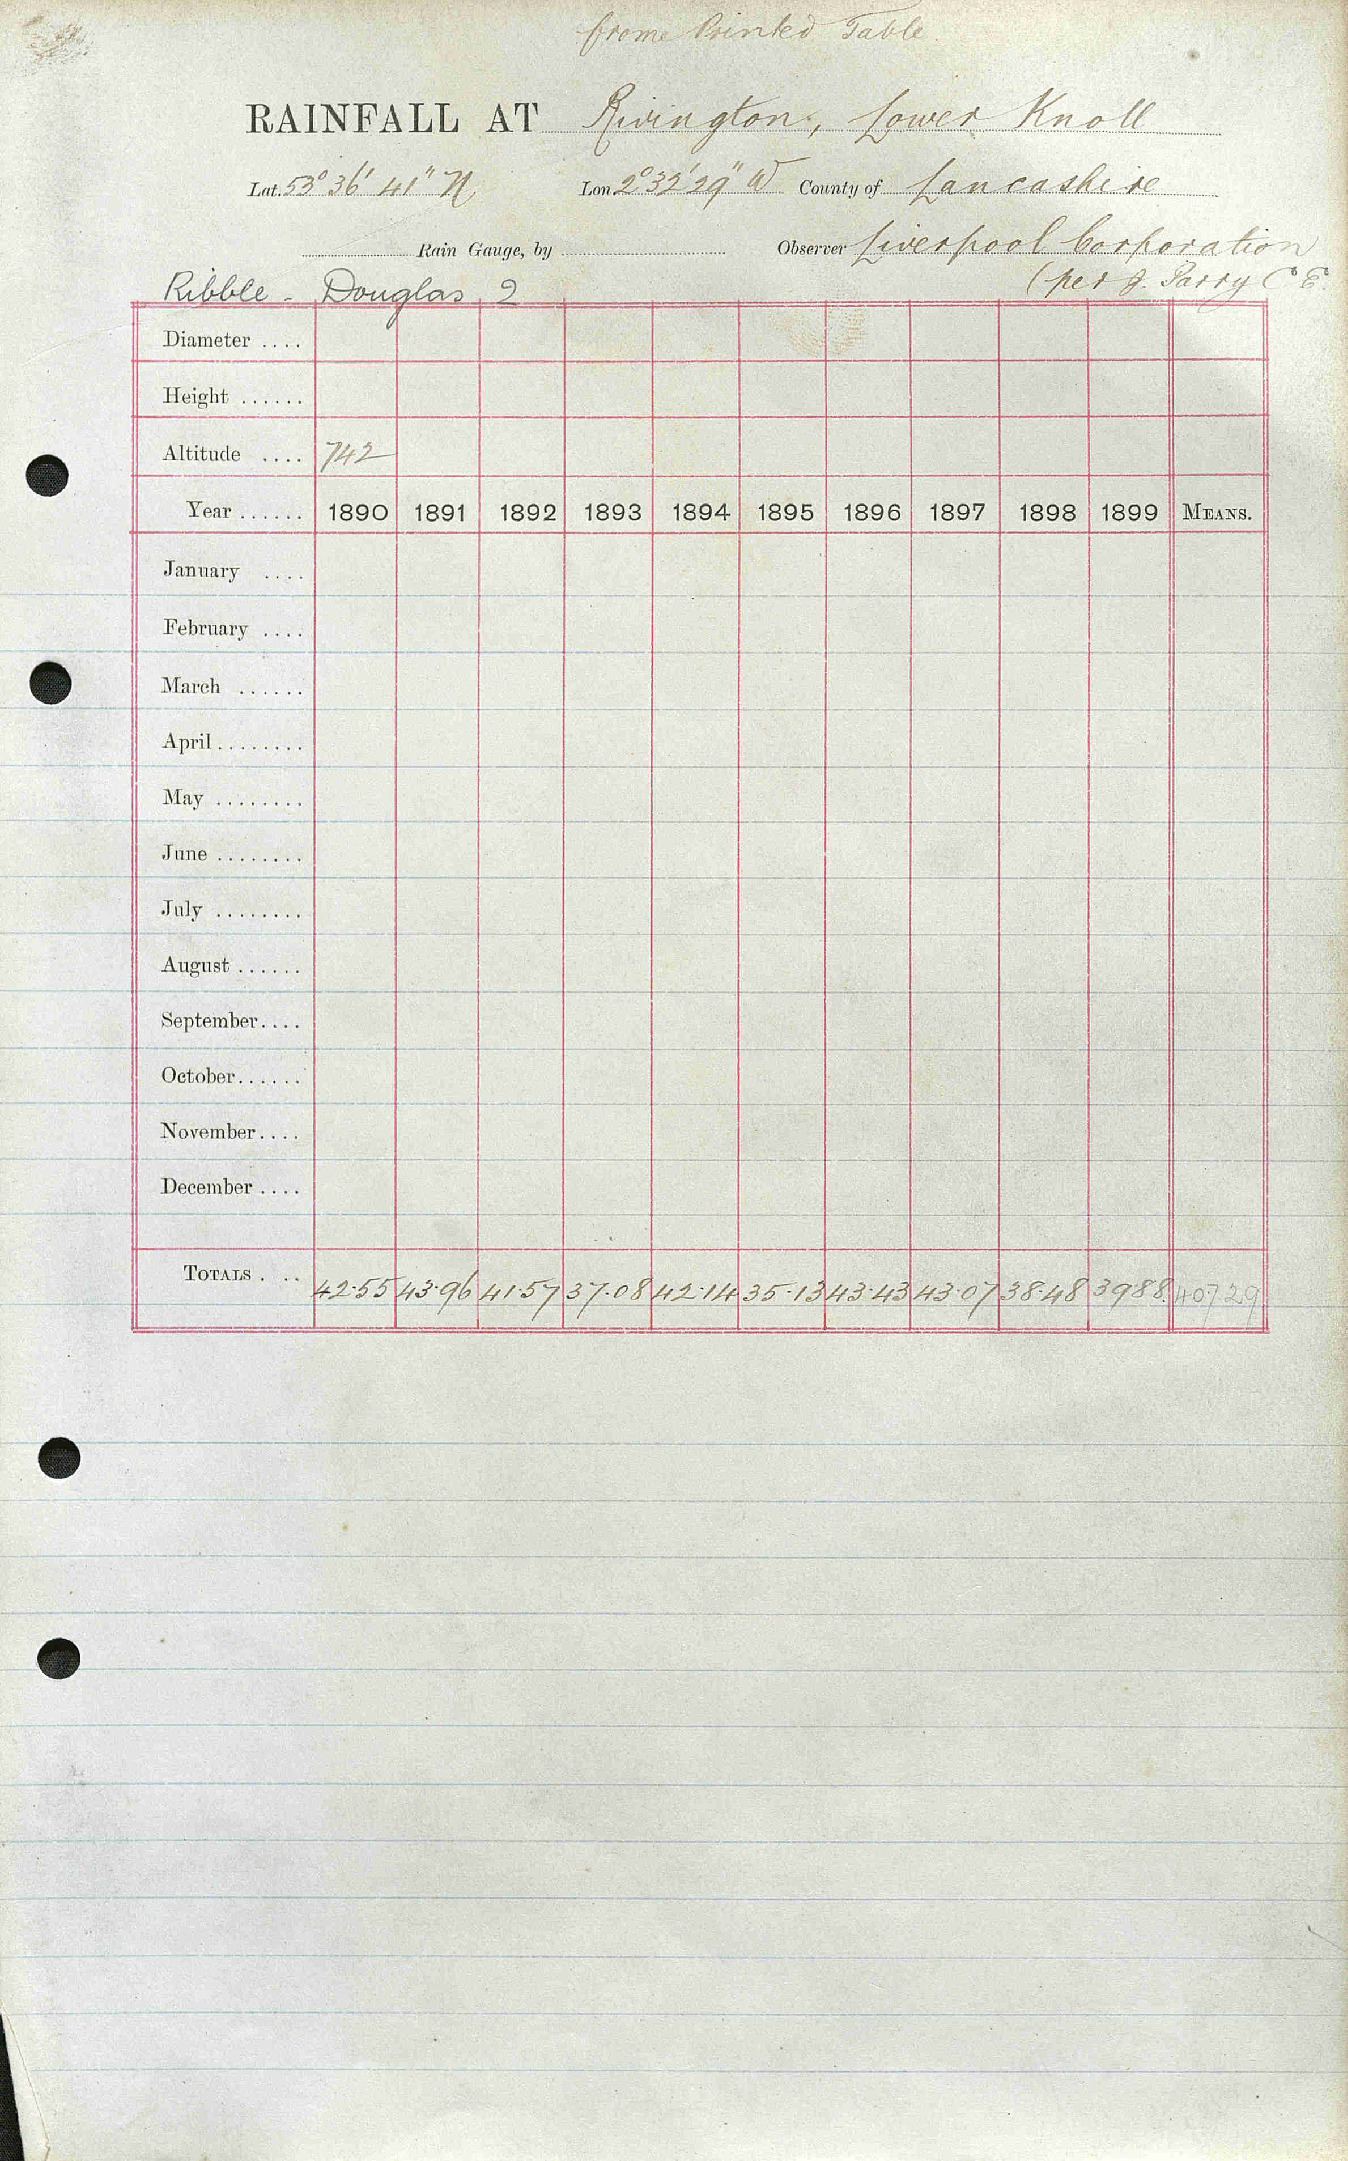 frome Printed Table
RAINFALL AT Rivington, Lower Knoll
Lat. 53° 36' 41" N Lon 2° 32' 29" W County of Lancashire
Rain Gauge, by Observer Liverpool Corporation
Ribble - Douglas 2 (per J. Parry C E.
Diameter ....
Height ......
Altitude .... 742
Year ...... 1890 1891 1892 1893 1894 1895 1896 1897 1898 1899 MEANS.
January ....
February ....
March ......
April ........
May ........
June ........
July ........
August ......
September....
October......
November....
December ....
TOTALS . .. 42.55 43.96 41.57 37.08 42.14 35.13 43.43 43.07 38.48 39.88 407 29